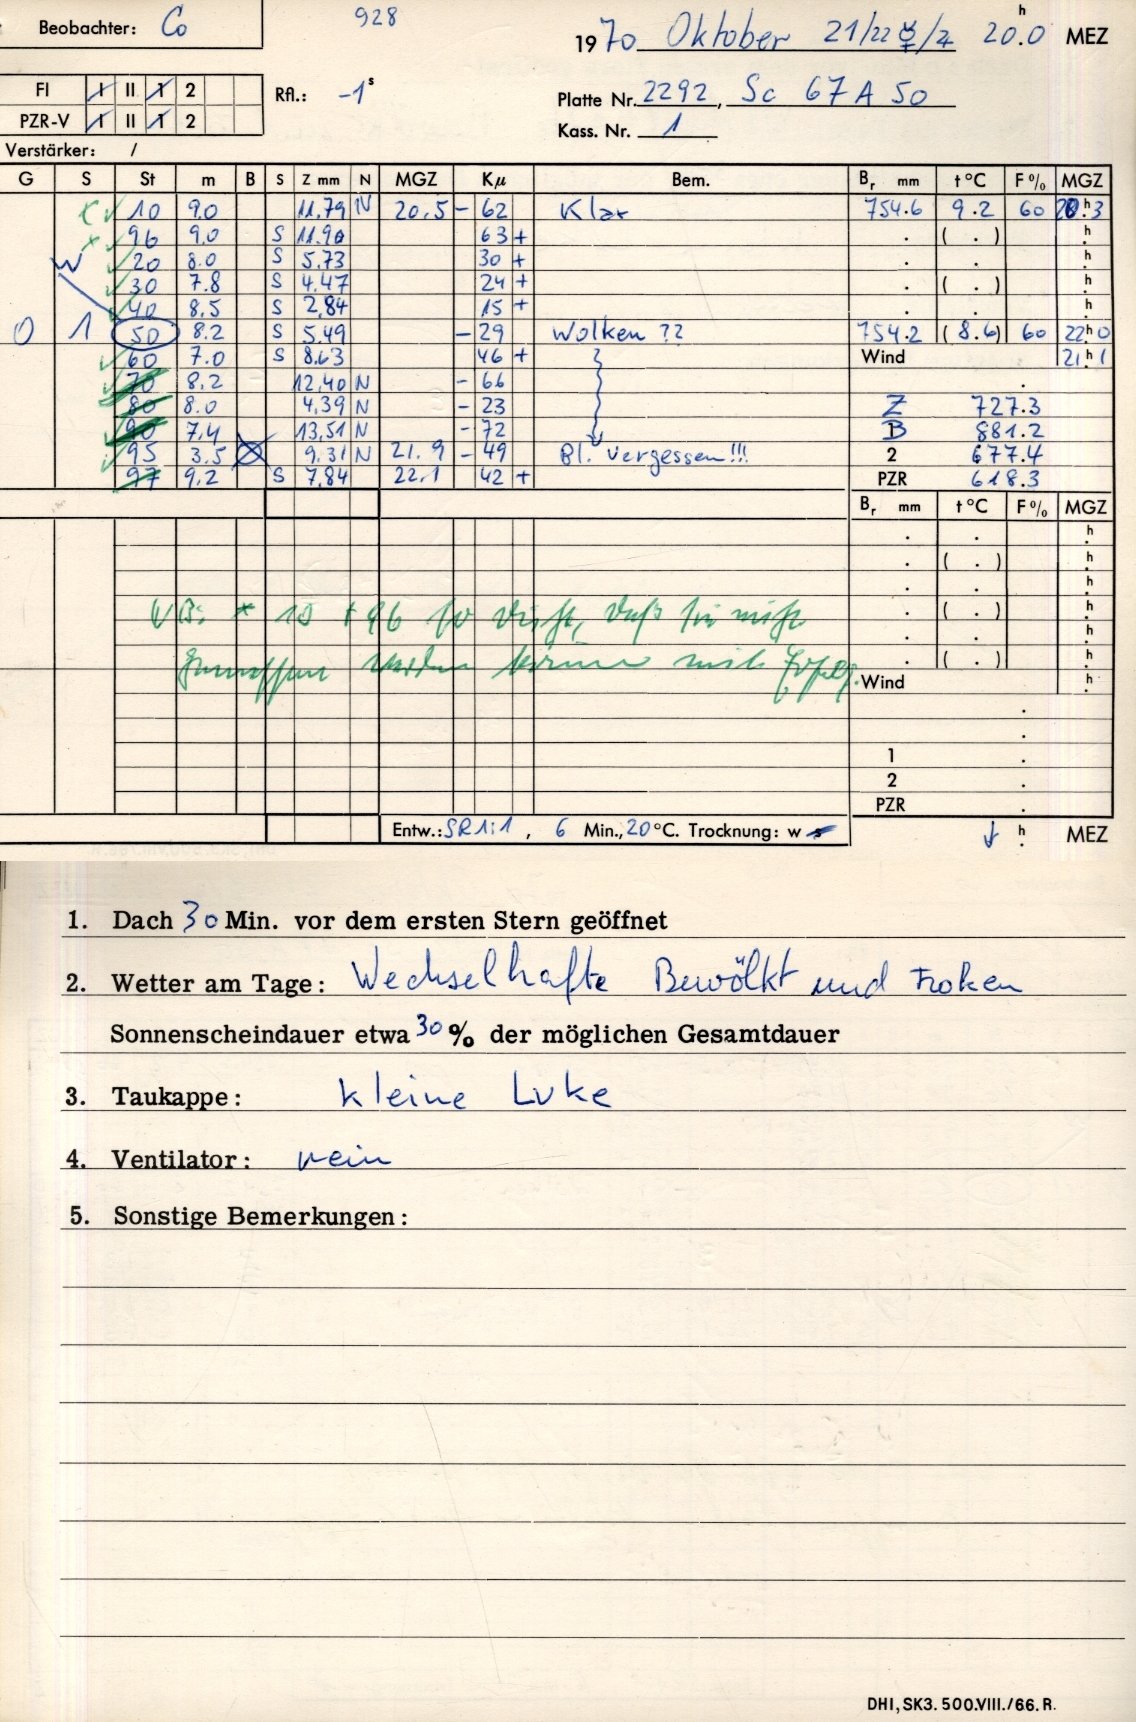 Beobachter: Co 928 1970 Oktober 21/22 ☿/♃ 20.0 h MEZ
FI I II 1 2 Rfl.: -1 s Platte Nr. 2292, Sc 67 A 50
PZR-V I II 1 2 Kass. Nr. 1
Verstärker: /
G S St m B S Z mm N MGZ Kμ Bem. Br mm t°C F% MGZ
10 9.0 11.79 N 20.5 - 62 Klar 754.6 9.2 60 h 3
96 9.0 S 11.90 63 + . ( . ) h
20 8.0 S 5.73 30 + . . h
30 7.8 S 4.47 24 + . ( . ) h
40 8.5 S 2.84 15 + . . h
0 1 50 8.2 S 5.49 - 29 Wolken ?? 754.2 (8.6) 60 22 h 0
60 7.0 S 8.63 46 + Wind 21 h 1
70 8.2 12.40 N - 66 .
80 8.0 4.39 N - 23 Z 727.3
90 7.4 13.51 N - 72 B 881.2
95 3.5 9.31 N 21.9 - 49 Bl. vergessen!!! 2 677.4
97 9.2 S 7.84 22.1 42 + PZR 618.3
Br mm t°C F% MGZ
. . h
. ( . ) h
. . h
* 10 + 96 so dicht, daß sie nicht . ( . ) h
. . h
gemessen werden können mit Erfolg. . ( . ) h
Wind h
.
.
1 .
2 .
PZR .
Entw.: SR 1:1, 6 Min., 20 °C. Trocknung: w s ↓ h MEZ
1. Dach 30 Min. vor dem ersten Stern geöffnet
2. Wetter am Tage: Wechselhafte Bewölkt und Troken
Sonnenscheindauer etwa 30 % der möglichen Gesamtdauer
3. Taukappe: kleine Luke
4. Ventilator: nein
5. Sonstige Bemerkungen:
DHI, SK3. 500. VIII. / 66. R.